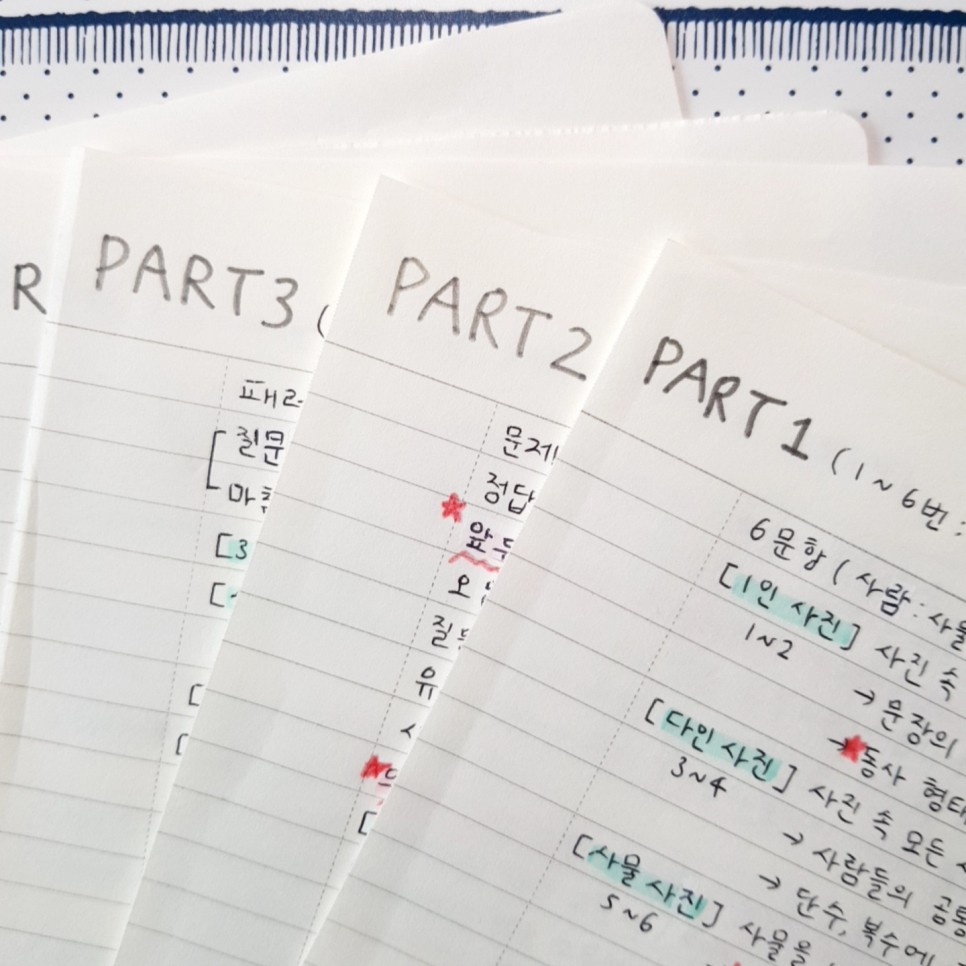 R
PART3 (
패러
질문
마
[3
[
[
[
PART2
문제
정답
앞
오
질문
유
[
PART1 (1~6번:
6문항 (사람:사물
[1인 사진] 사진 속
1~2
→ 문장의
→ 동사 형태
[다인 사진] 사진 속 모든
3~4
→ 사람들의 공통
→ 단수, 복수에
[사물 사진] 사물을
5~6